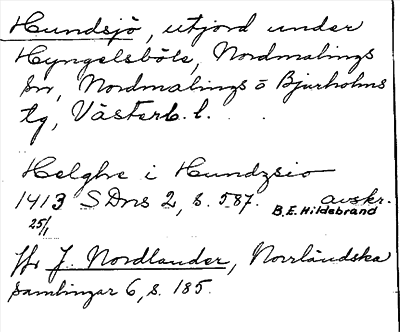 Hundsjö, utjord under
Hyngelsböle, Nordmalings
sn, Nordmalings o Bjurholms
tg, Västerb. l.
Helghe i Hundzsio
1413 SDns 2, s. 587. avskr.
25/1 B.E. Hildebrand
jfr J. Nordlander, Norrländska
Samlingar 6, s. 185.